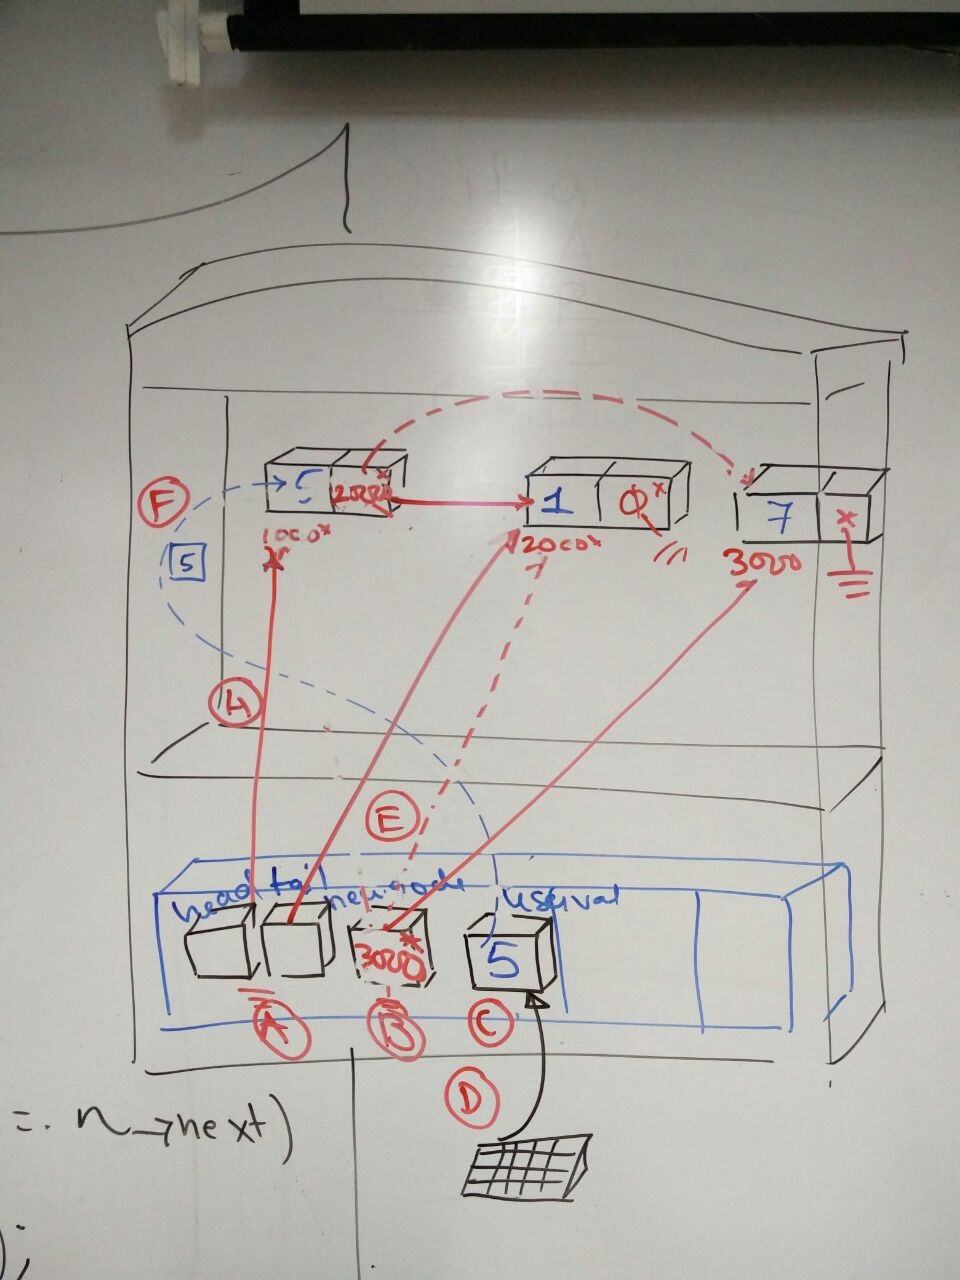 F
5
2000*
1
0*
7
x
1000*
2000*
3000
5
H
E
head tail newnode userval
3000*
5
A
B
C
D
=. n→next)
);